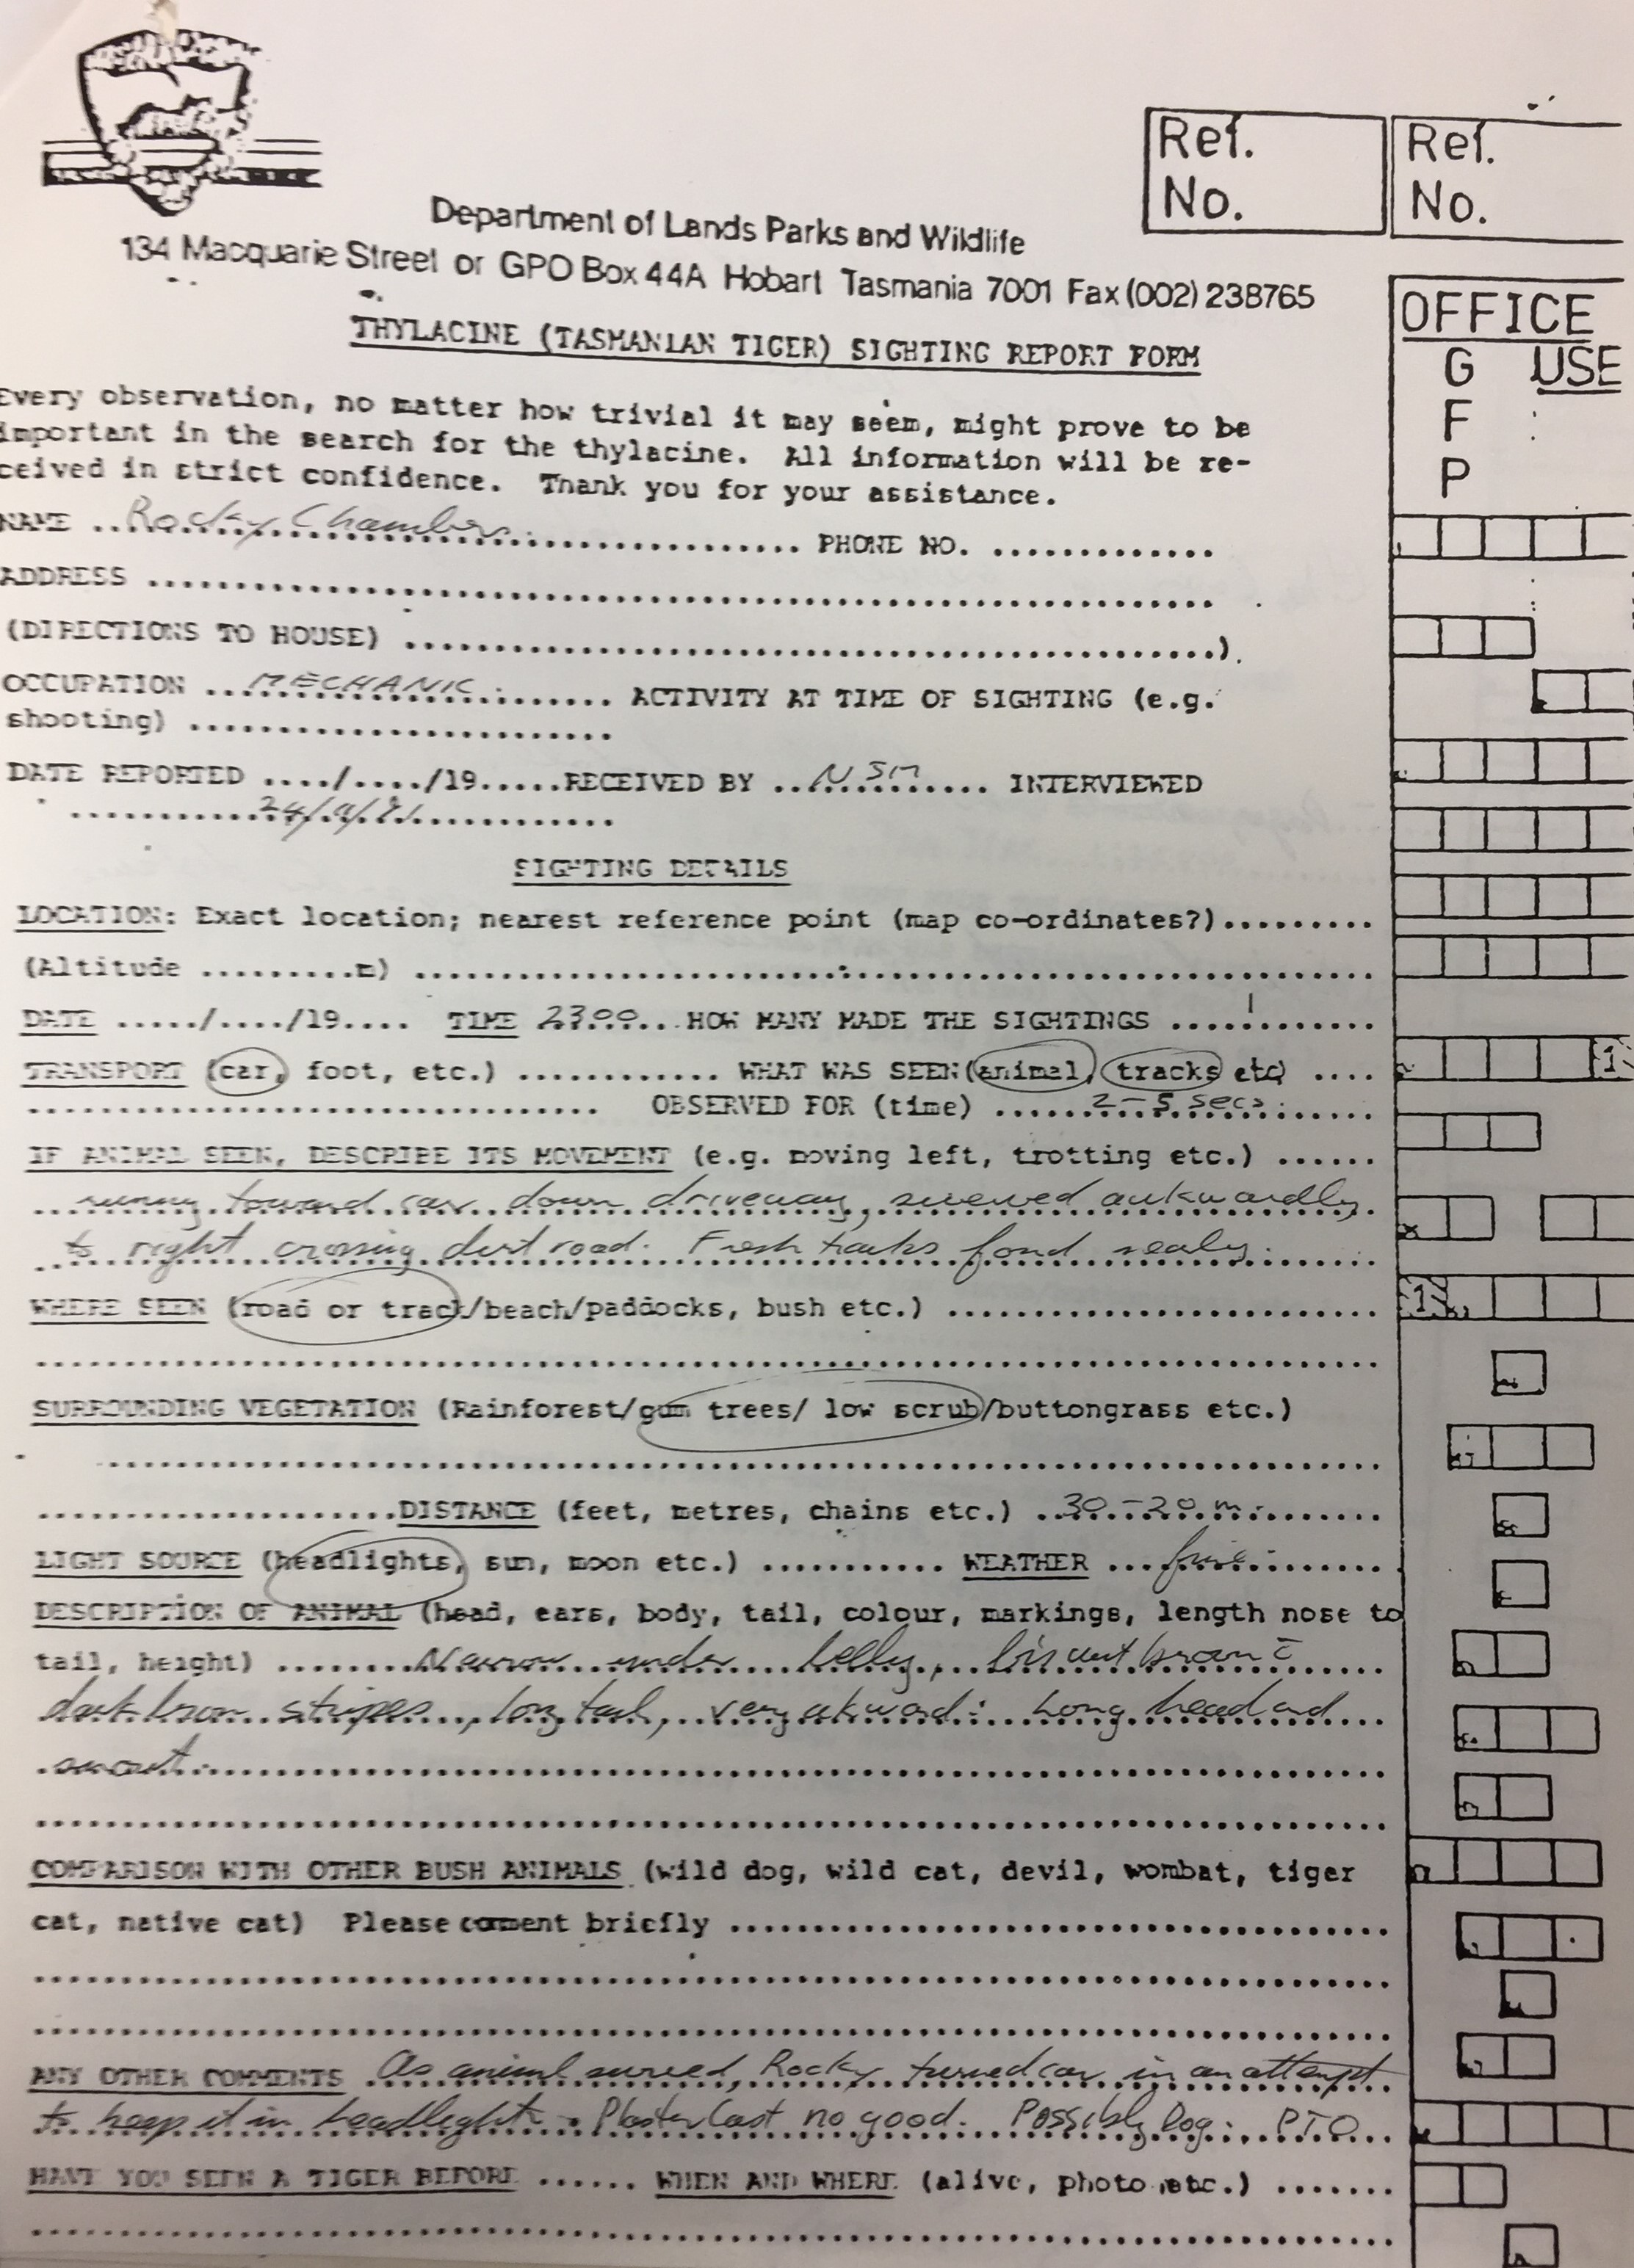 Ref. No.
Ref. No.
Department of Lands Parks and Wildlife
134 Macquarie Street or GPO Box 44A Hobart Tasmania 7001 Fax (002) 238765
THYLACINE (TASMANIAN TIGER) SIGHTING REPORT FORM
OFFICE
G USE
F
P
Every observation, no matter how trivial it may seem, might prove to be
important in the search for the thylacine. All information will be re-
ceived in strict confidence. Thank you for your assistance.
NAME ..Rocky Chambers.................. PHONE NO. .............
ADDRESS ..........................................................
(DIRECTIONS TO HOUSE) ............................................).
OCCUPATION ...MECHANIC......... ACTIVITY AT TIME OF SIGHTING (e.g.
shooting) ........................
DATE REPORTED ..../..../19.....RECEIVED BY ..NSM...... INTERVIEWED
SIGHTING DETAILS
LOCATION: Exact location; nearest reference point (map co-ordinates?).........
(Altitude .........m) .........................................................
DATE ...../..../19.... TIME 2300... HOW MANY MADE THE SIGHTINGS ....1.......
TRANSPORT (car, foot, etc.) ............ WHAT WAS SEEN (animal, tracks etc) ....
................................. OBSERVED FOR (time) ......2-5 secs.......
1
IF ANIMAL SEEN, DESCRIBE ITS MOVEMENT (e.g. moving left, trotting etc.) ......
toward car down driveway, awkwardly
to right crossing dirt road. Fresh tracks fond
WHERE SEEN (road or track/beach/paddocks, bush etc.) .........................
1
SURROUNDING VEGETATION (Rainforest/gum trees/ low scrub/buttongrass etc.)
......................DISTANCE (feet, metres, chains etc.) ..30-20 m.........
LIGHT SOURCE (headlights, sun, moon etc.) ........... WEATHER ...fine........
DESCRIPTION OF ANIMAL (head, ears, body, tail, colour, markings, length nose to
tail, height) ........Narrow under belly, biscuit brown c̄
dark brown stripes, long tail, very akward. Long head and
snout.
COMPARISON WITH OTHER BUSH ANIMALS (wild dog, wild cat, devil, wombat, tiger
cat, native cat) Please coment briefly .......................................
ANY OTHER COMMENTS .As animal Rocky turned car in an attempt
to keep it in headlights. Plaster Cast no good. Possibly Dog. PTO
HAVE YOU SEEN A TIGER BEFORE ...... WHEN AND WHERE (alive, photo etc.) .......